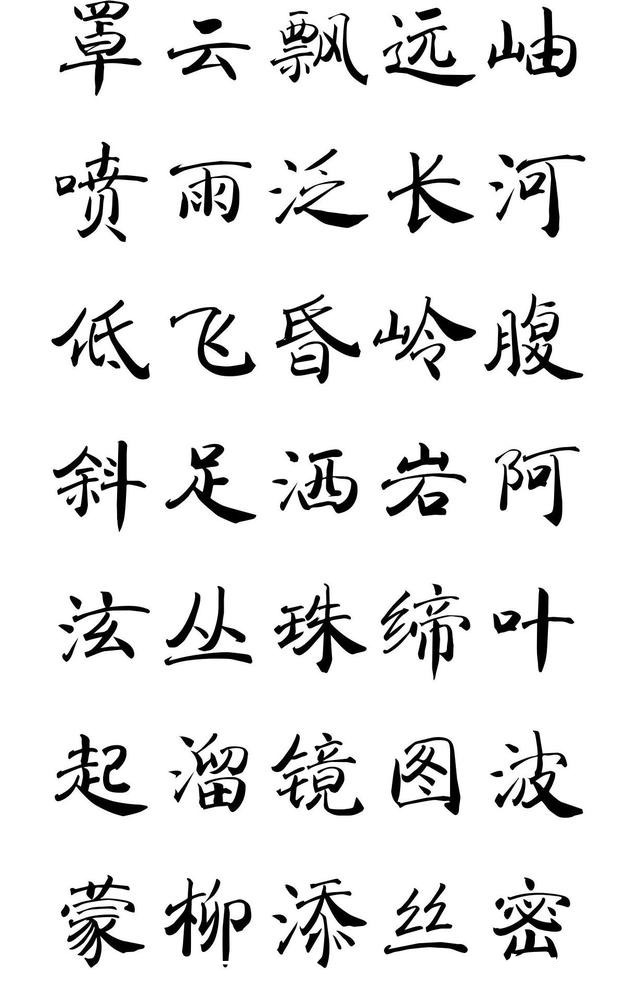 罩云飘远岫
喷雨泛长河
低飞昏岭腹
斜足洒岩阿
泫丛珠缔叶
起溜镜图波
蒙柳添丝密